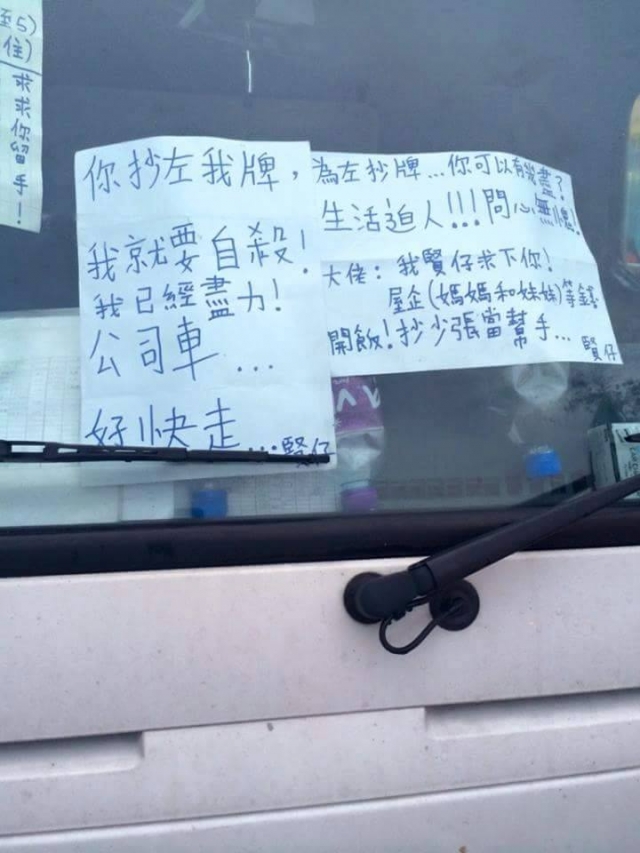 至5)
住)
求求你留手!
你抄左我牌,
我就要自殺!
我已經盡力!
公司車...
好快走...賢仔
為左抄牌...你可以有幾盡?
生活迫人!!!問心無愧!
大佬: 我賢仔求下你!
屋企(媽媽和妹妹)等錢
開飯!抄少張當幫手... 賢仔